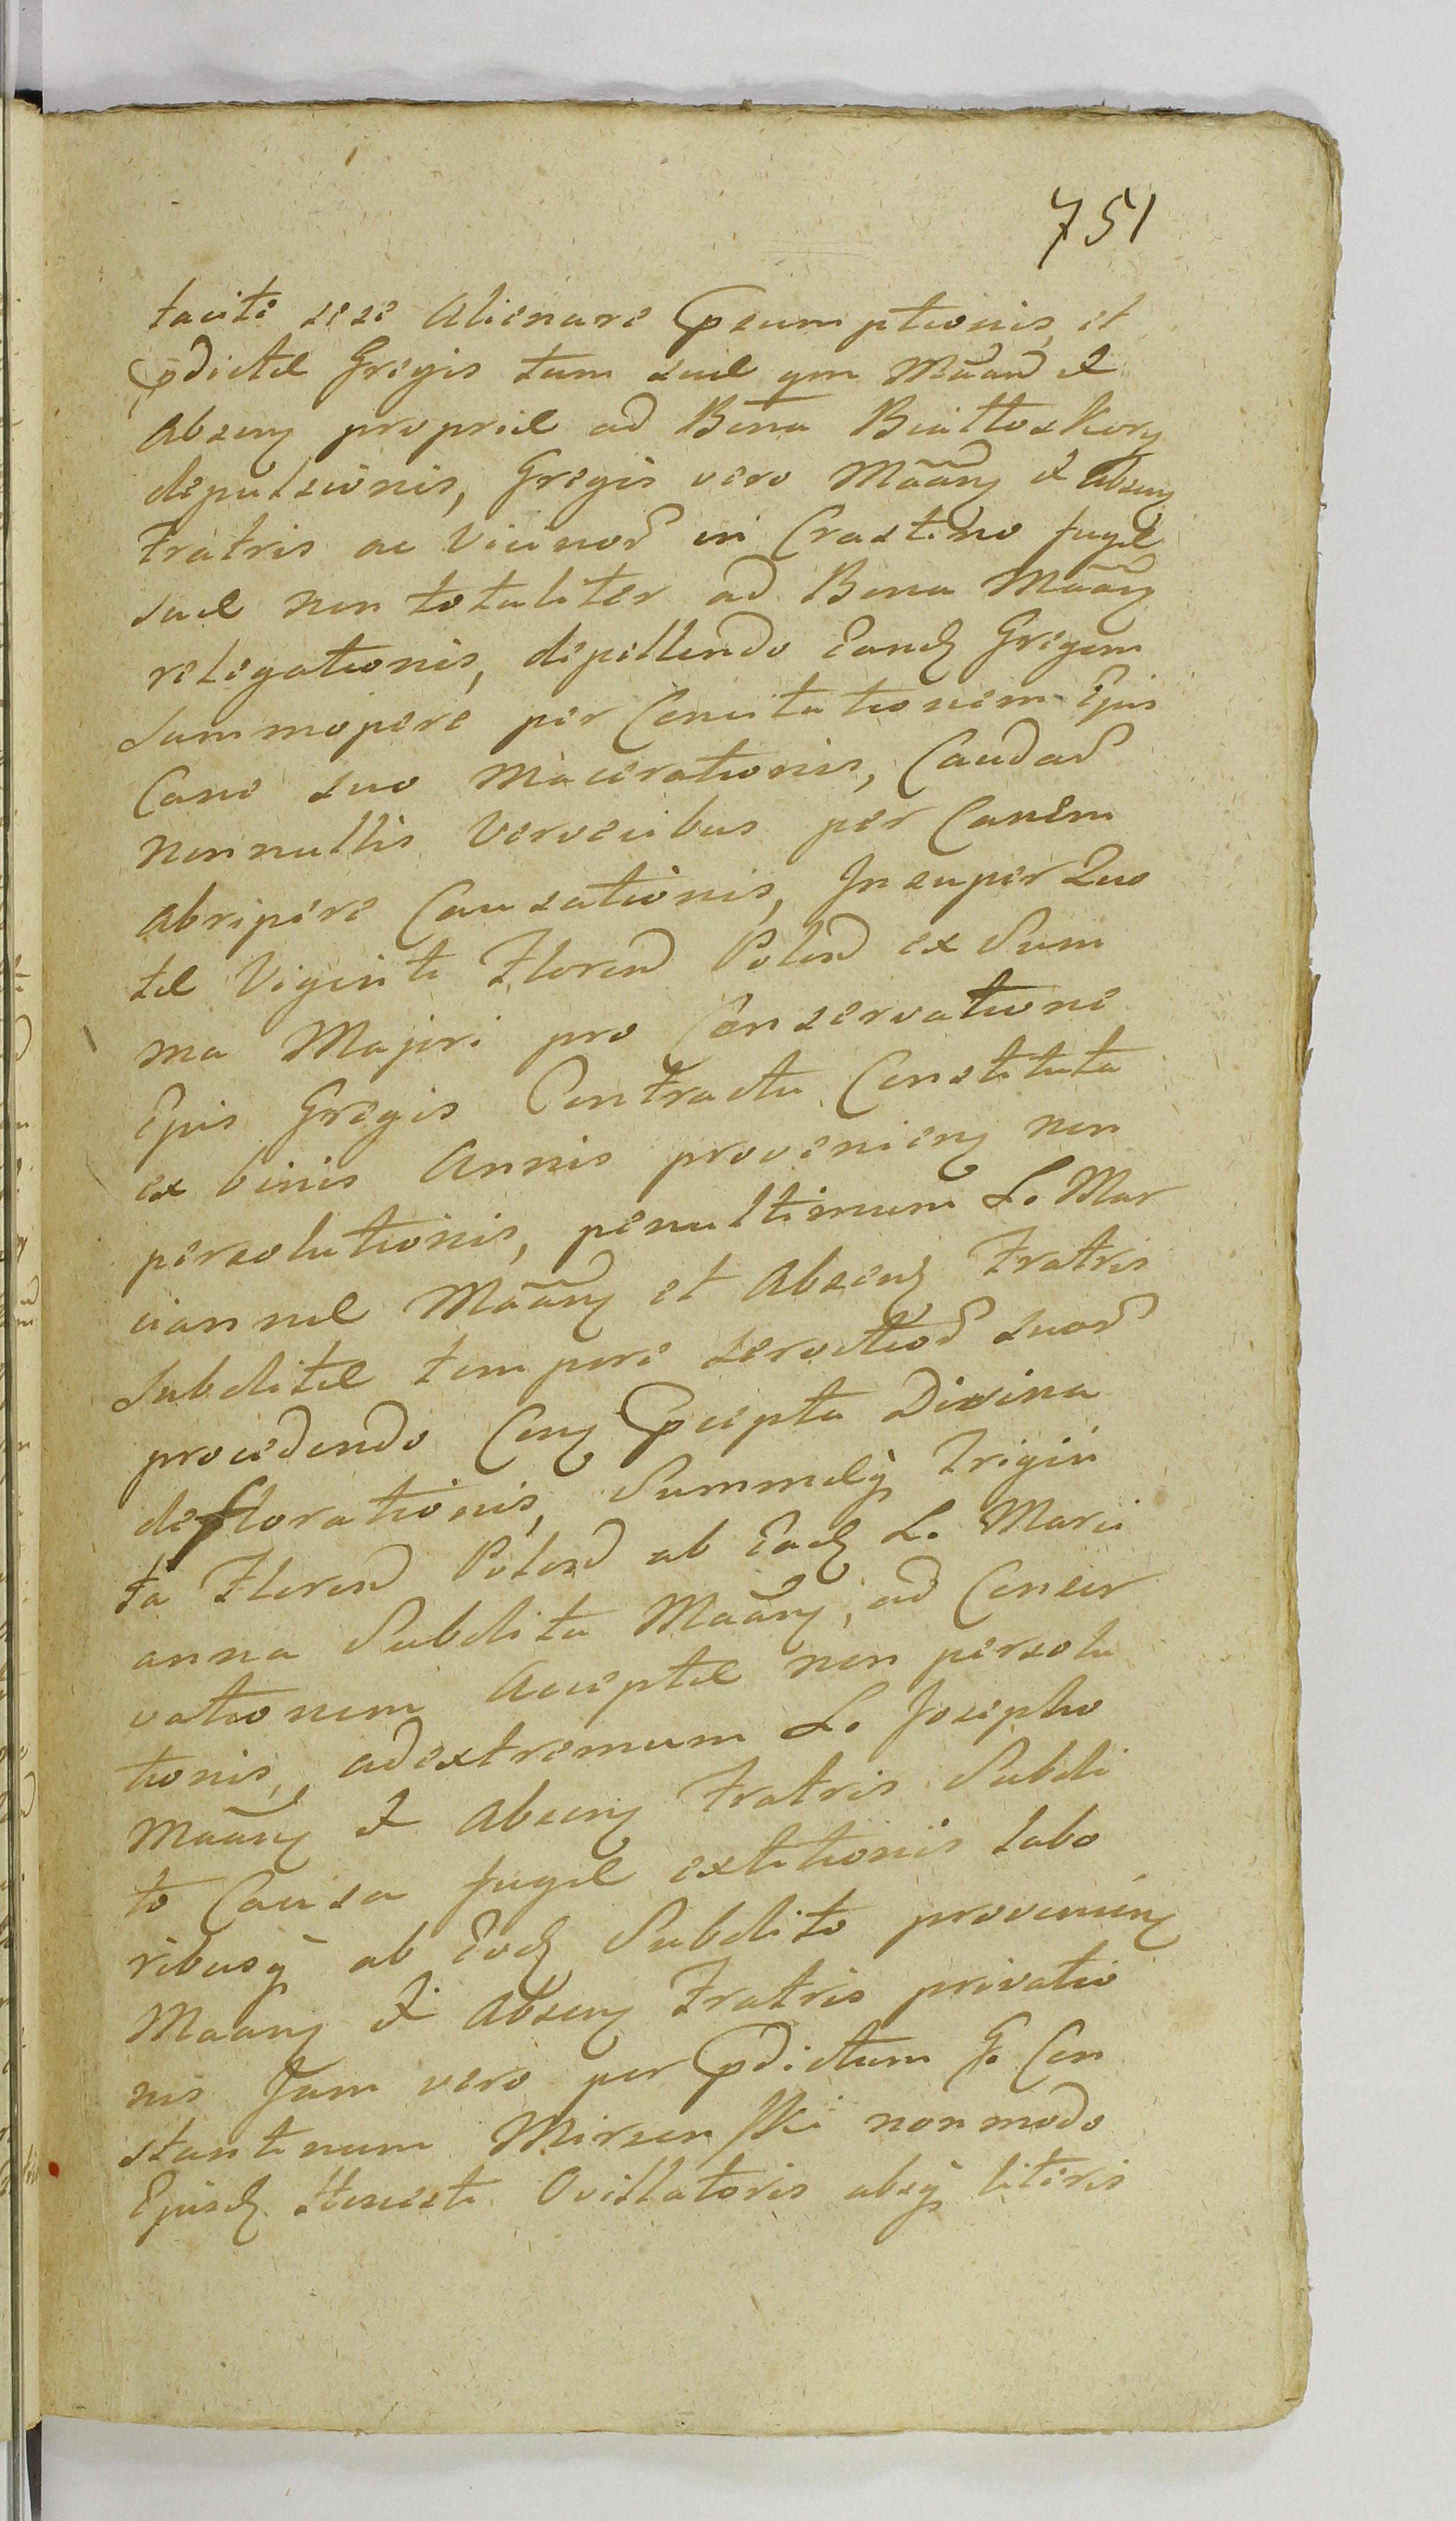 751
tacite sese Alienare Psumptionis, et
pdictæ Gregis tum suæ qm Mãand &
Absenȝ propriæ ad Bona Biattoskory
depulsionis, Gregis vero Mãanȝ & Absenȝ
Fratris ac Vicinor in Crastino fugæ
suæ non totaliter ad Bona Mãanȝ
relegationis, depellendo Eandȝ Gregem
Summopere per Concitationem Ejus
Cane suo Macerationis, Caudas
nonnullis Vervecibus per Canem
abripere Causationis, Insuper Quo
tæ Viginti Floren Polon ex Sum
ma Majori pro Conservatione
Ejus Gregis Contractu Constituta
ex binis Annis provenienȝ non
persolutionis, penultimum L. Mar
ciannæ Mãanȝ et Absenȝ Fratris
Subditæ tempore servitior suor
procedendo Conȝ Pcepta Divina
deflorationis, Summæq Trigin
ta Floren Polon ab Eadȝ L. Mari
anna Subdita Mãanȝ, ad Conser
vationem Acceptæ non persolu
tionis, adextremum L. Josepho
Mãanȝ & Absenȝ Fratris Subdi
to Causa fugæ extitionis labo
ribusq ab Eodȝ Subdito provenienȝ
Maanȝ & Absenȝ Fratris privatio
nis Jam vero per Pdictum G. Con
stantinum Mirzenski nonmodo
Ejusdȝ Ovillatoris absq literis